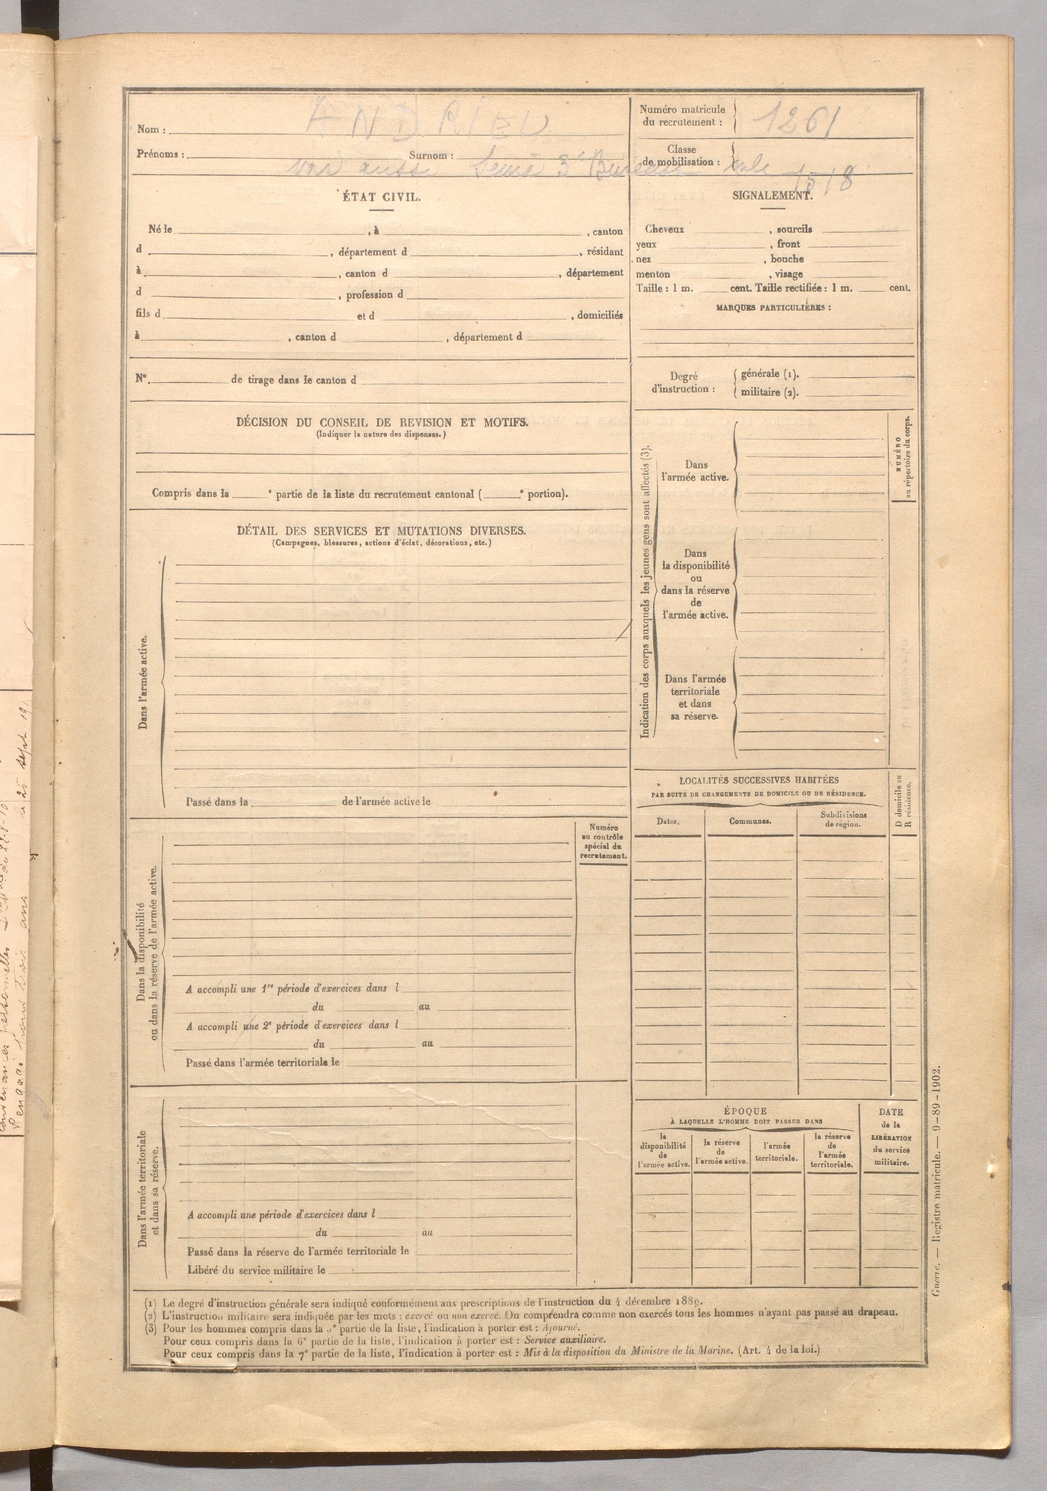 Nom : ANDRIEU
Prénoms : Surnom :
voir aussi Seine 3e Bureau
Numéro matricule du recrutement : 1261
Classe de mobilisation :
1518
ÉTAT CIVIL.
Né le , à , canton
d , département d , résidant
à , canton d , département
d , profession d
fils d et d , domiciliés
à , canton d , département d
N° de tirage dans le canton d
DÉCISION DU CONSEIL DE REVISION ET MOTIFS.
(Indiquer la nature des dispenses.)
Compris dans la e partie de la liste du recrutement cantonal ( e portion).
DÉTAIL DES SERVICES ET MUTATIONS DIVERSES.
(Campagnes, blessures, actions d'éclat, décorations, etc.)
Dans l'armée active.
Passé dans la de l'armée active le
Numéro
au contrôle
spécial du
recrutement.
Dans la disponibilité
ou dans la réserve de l'armée active.
A accompli une 1re période d'exercices dans l
du au
A accompli une 2e période d'exercices dans l
du au
Passé dans l'armée territoriale le
Dans l'armée territoriale
et dans sa réserve.
A accompli une période d'exercices dans l
du au
Passé dans la réserve de l'armée territoriale le
Libéré du service militaire le
SIGNALEMENT.
Cheveux , sourcils
yeux , front
nez , bouche
menton , visage
Taille : 1 m. cent. Taille rectifiée : 1 m. cent.
MARQUES PARTICULIÈRES :
Degré
d'instruction :
générale (1).
militaire (2).
Indication des corps auxquels les jeunes gens sont affectés (3).
Dans
l'armée active.
NUMÉRO
au répertoire du corps.
Dans
la disponibilité
ou
dans la réserve
de
l'armée active.
Dans l'armée
territoriale
et dans
sa réserve.
LOCALITÉS SUCCESSIVES HABITÉES
PAR SUITE DE CHANGEMENTS DE DOMICILE OU DE RÉSIDENCE.
Dates. Communes. Subdivisions de région.
D domicile ou
R résidence.
ÉPOQUE
À LAQUELLE L'HOMME DOIT PASSER DANS
la
disponibilité
de
l'armée active.
la réserve
de
l'armée active.
l'armée
territoriale.
la réserve
de
l'armée
territoriale.
DATE
de la
LIBÉRATION
du service
militaire.
(1) Le degré d'instruction générale sera indiqué conformément aux prescriptions de l'instruction du 4 décembre 1889.
(2) L'instruction militaire sera indiquée par les mots : exercé ou non exercé. On comprendra comme non exercés tous les hommes n'ayant pas passé au drapeau.
(3) Pour les hommes compris dans la 5e partie de la liste, l'indication à porter est : Ajourné.
Pour ceux compris dans la 6e partie de la liste, l'indication à porter est : Service auxiliaire.
Pour ceux compris dans la 7e partie de la liste, l'indication à porter est : Mis à la disposition du Ministre de la Marine. (Art. 4 de la loi.)
Guerre. — Registre matricule. — 9-89-1902.